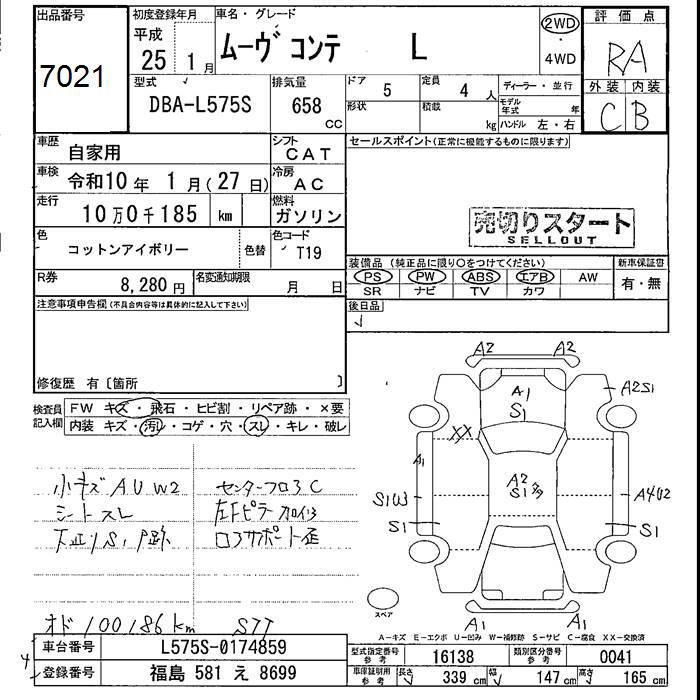 出品番号
7021
初度登録年月
平成
25 1月
車名・グレード
ムーヴ コンテ L
2WD
4WD
評価点
RA
外装 内装
C B
型式
DBA-L575S
排気量
658 CC
ドア
5
定員
4 人
ディーラー・並行
形状
積載
kg
モデル年式 年
ハンドル 左・右
車歴
自家用
シフト
CAT
車検
令和10年 1月(27日)
冷房
AC
走行
10万0千185 km
燃料
ガソリン
色
コットンアイボリー
色替
色コード
T19
R券
8,280円
名変通知期限
月 日
セールスポイント(正常に機能するものに限ります)
売切りスタート
SELLOUT
装備品(純正品に限り○をつけてください)
PS PW ABS エアB AW
SR ナビ TV カワ
新車保証書
有・無
後日品
注意事項申告欄(不具合内容等は具体的に記入して下さい)
修復歴 有〔箇所 〕
検査員
記入欄
FW キズ・飛石・ヒビ割・リペア跡・×要
内装 キズ・汚レ・コゲ・穴・スレ・キレ・破レ
小キズ A U W2
シートスレ
センターフロ3C
オド 100,186km STT
A2 A2
A1
S1
A2S1
XX
A1
A2
S1
S1
S1
A1 A1
スペア
A-キズ E-エクボ U-凹み W-補修跡 S-サビ C-腐食 XX-交換済
車台番号
L575S-0174859
登録番号
福島 581 え 8699
型式指定番号
参考
16138
類別区分番号
参考
0041
車庫証明用
参考
長さ 339cm 幅 147cm 高さ 165cm